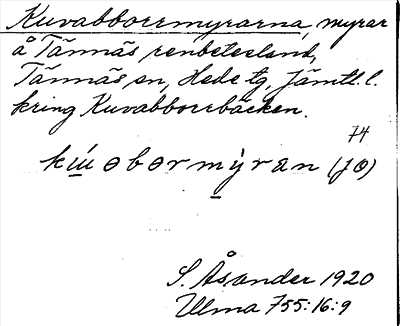 Kuvabborrmyrarna, myrar
å Tännäs renbetesland,
Tännäs sn, Hede tg, Jämtl. l.
kring Kuvabborrbäcken.
74
kúɯəbərmỳran (JO)
S. Åsander 1920
Ulma 755:16:9